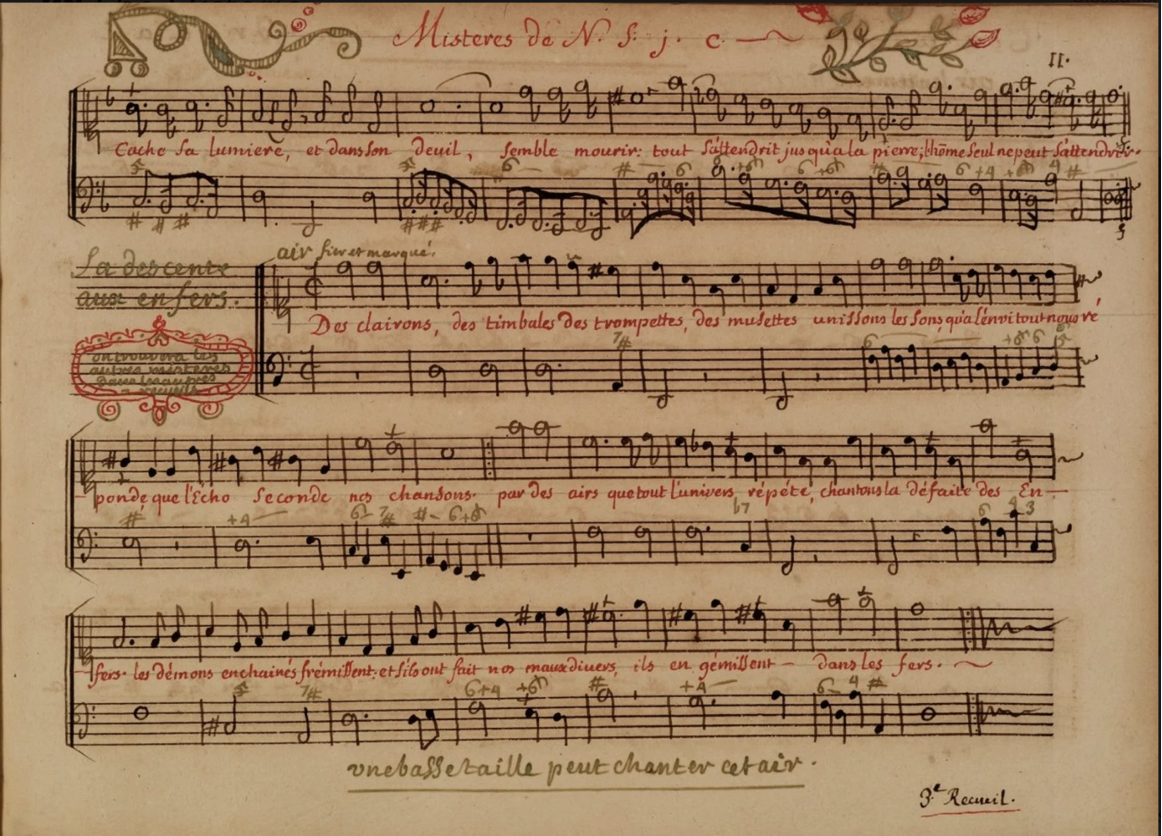 Misteres de N. S. j. c.
11.
Cache sa lumiere, et dans son deuil, semble mourir: tout s'attendrit jusqu'a la pierre; l'hôme seul ne peut s'attendrir.
La descente
aux enfers.
air fier et marqué.
Des clairons, des timbales des trompettes, des musettes unissons les sons qu'a l'envi tout nous ré
on trouvera les
autres misteres
ponde, que l'Echo seconde nos chansons. par des airs que tout l'univers répéte, chantons la défaite des En-
fers. les démons enchainés frémissent, et s'ils ont fait nos maux divers, ils en gémissent - dans les fers.
une basse taille peut chanter cet air.
3.e Recueil.